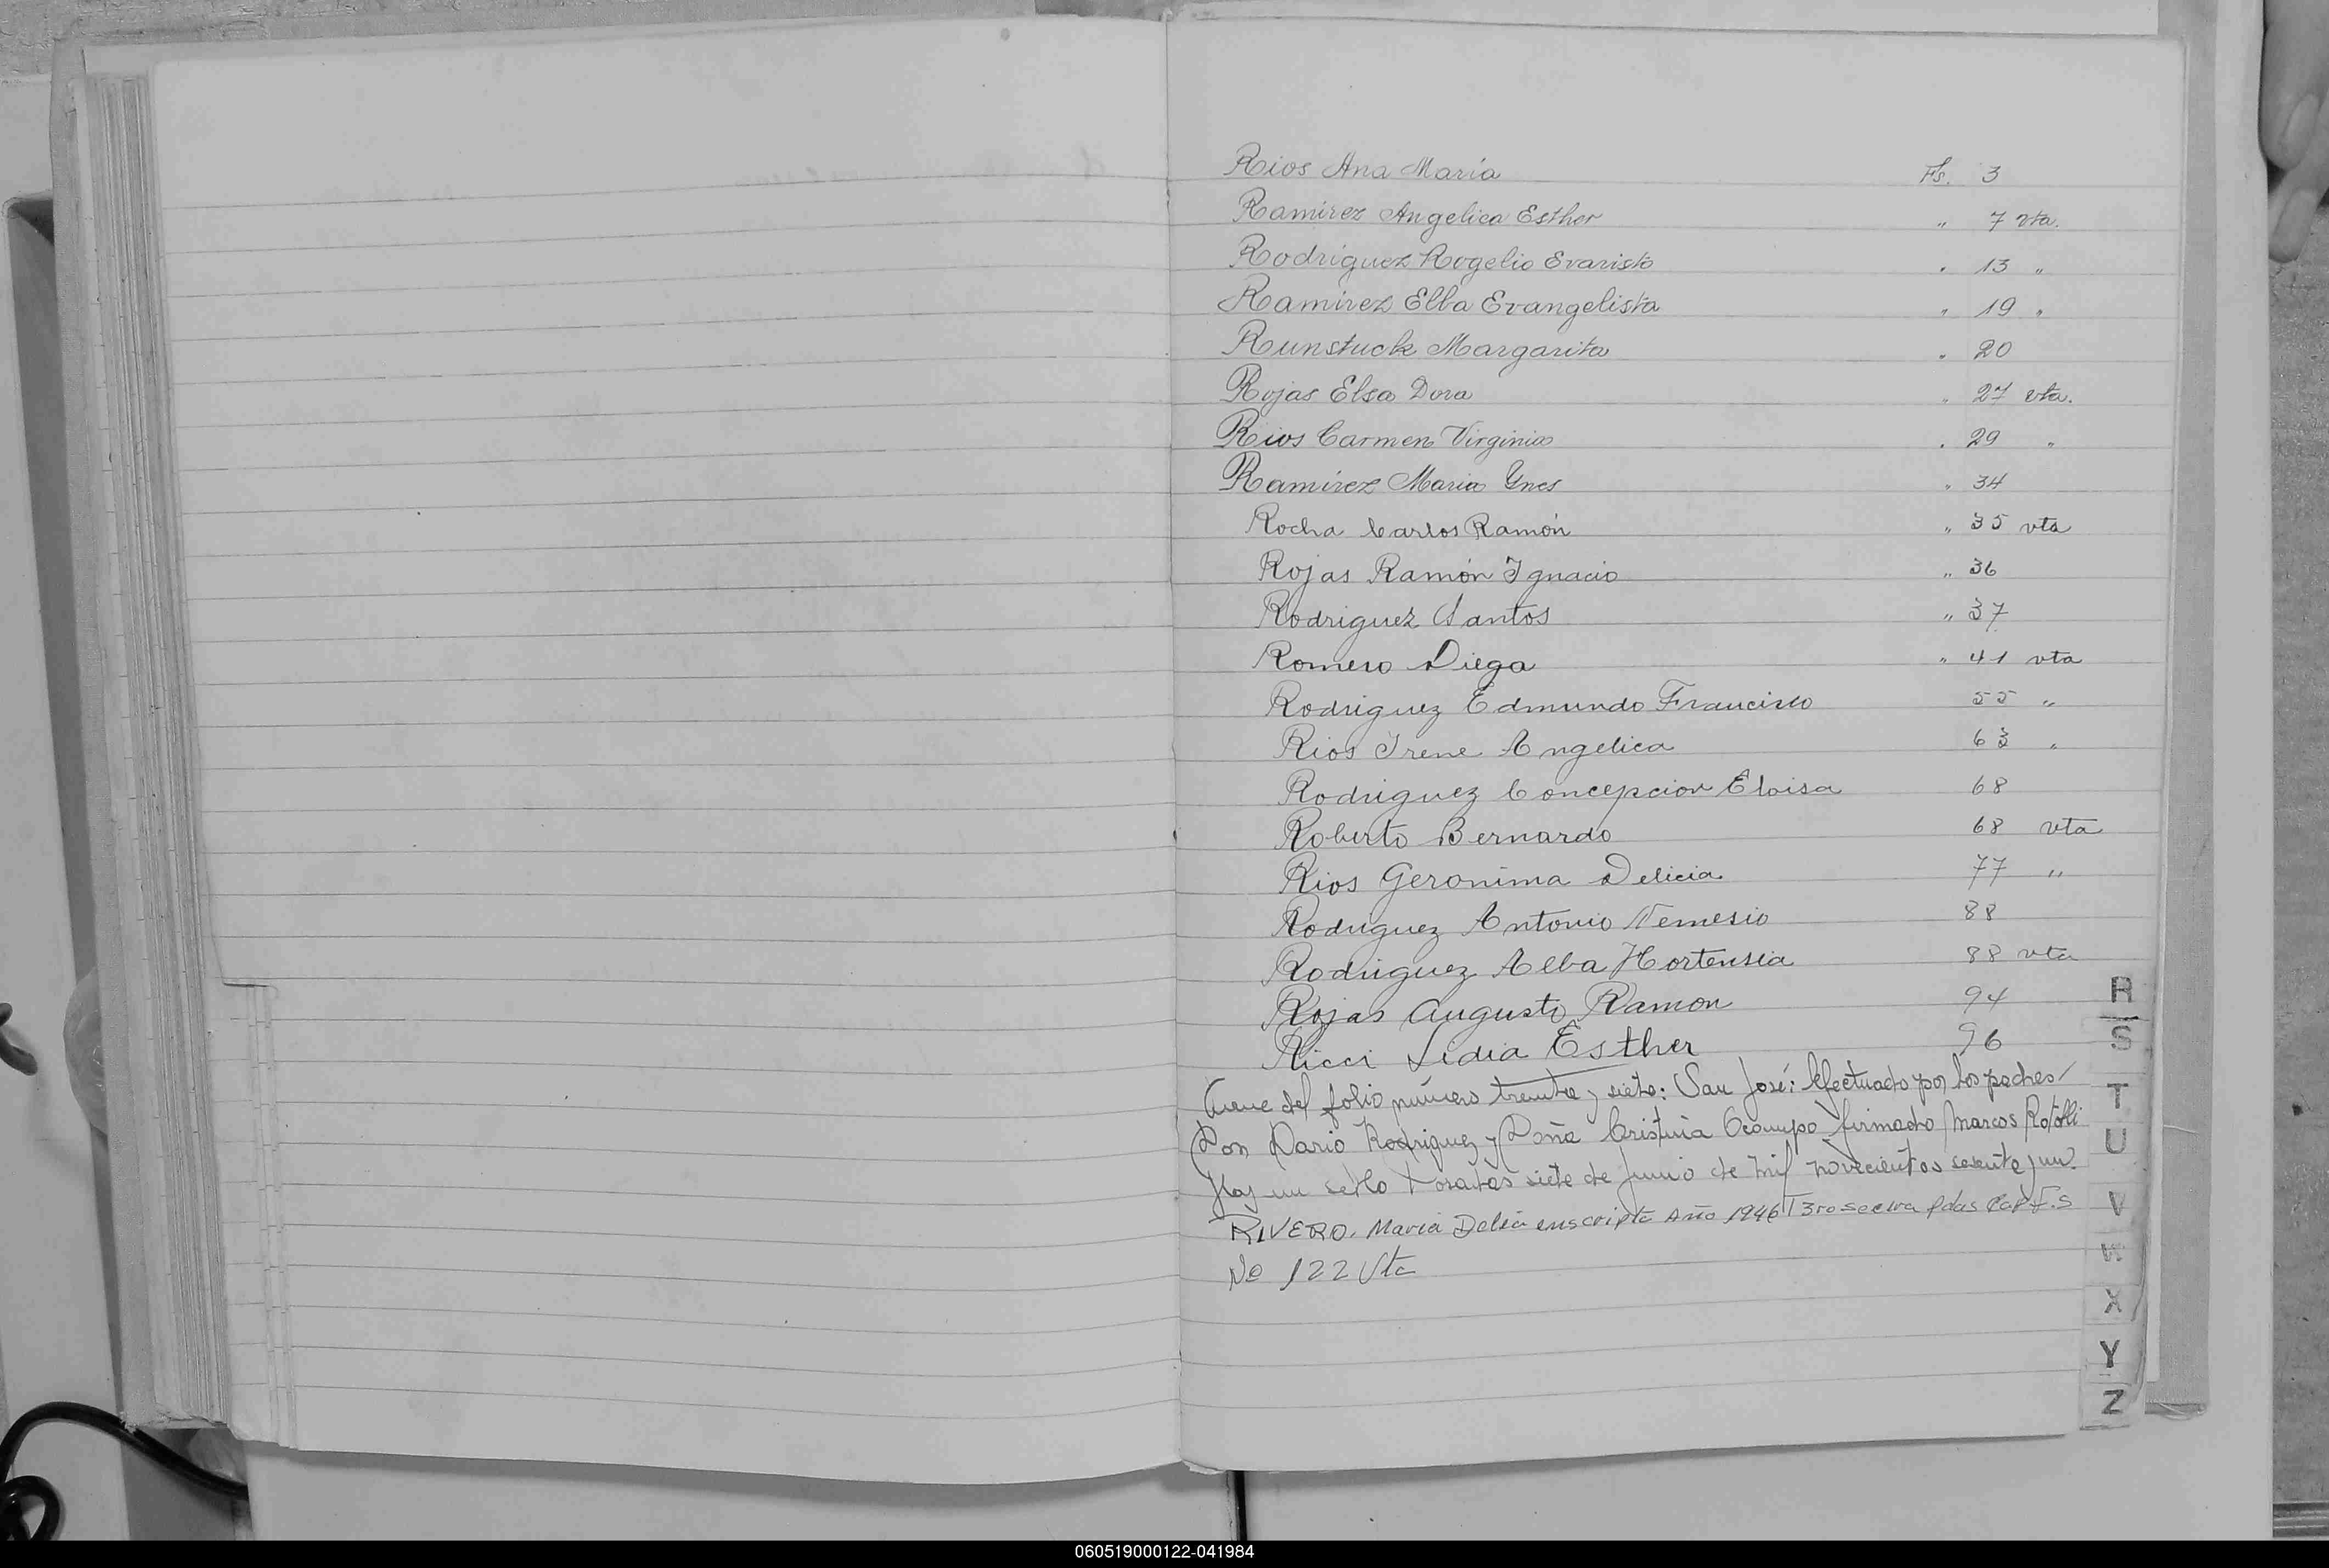 Rios Ana María Fs. 3
Ramírez Angelica Esther " 7 vta.
Rodríguez Rogelio Evaristo " 13 "
Ramírez Elba Evangelista " 19 "
Runstuck Margarita " 20
Rojas Elsa Dora " 27 vta.
Rios Carmen Virginia " 29 "
Ramírez Maria Ynes " 34
Rocha Carlos Ramón " 35 vta
Rojas Ramón Ignacio " 36
Rodriguez Santos " 37
Romero Diega " 41 vta
Rodriguez Edmundo Francisco 55 "
Rios Irene Angelica 63 "
Rodriguez Concepcion Eloisa 68
Roberto Bernardo 68 vta
Rios Geronima Delicia 77 "
Rodriguez Antonio Nemesio 88
Rodriguez Alba Hortensia 88 vta
Rojas Augusto Ramon 94
Ricci Lidia Esther 96
Viene del folio número treinta y siete: San José: Efectuado por los padres
Don Dario Rodriguez y Doña Cristina Ocampo firmado Marcos
Hay un sello Posadas siete de Junio de mil novecientos sesenta y un.
RIVERO. Maria Delia enscripta Año 1946 T 3ro F.S
No 122 Vta
R
S
T
U
V
W
X
Y
Z
060519000122-041984